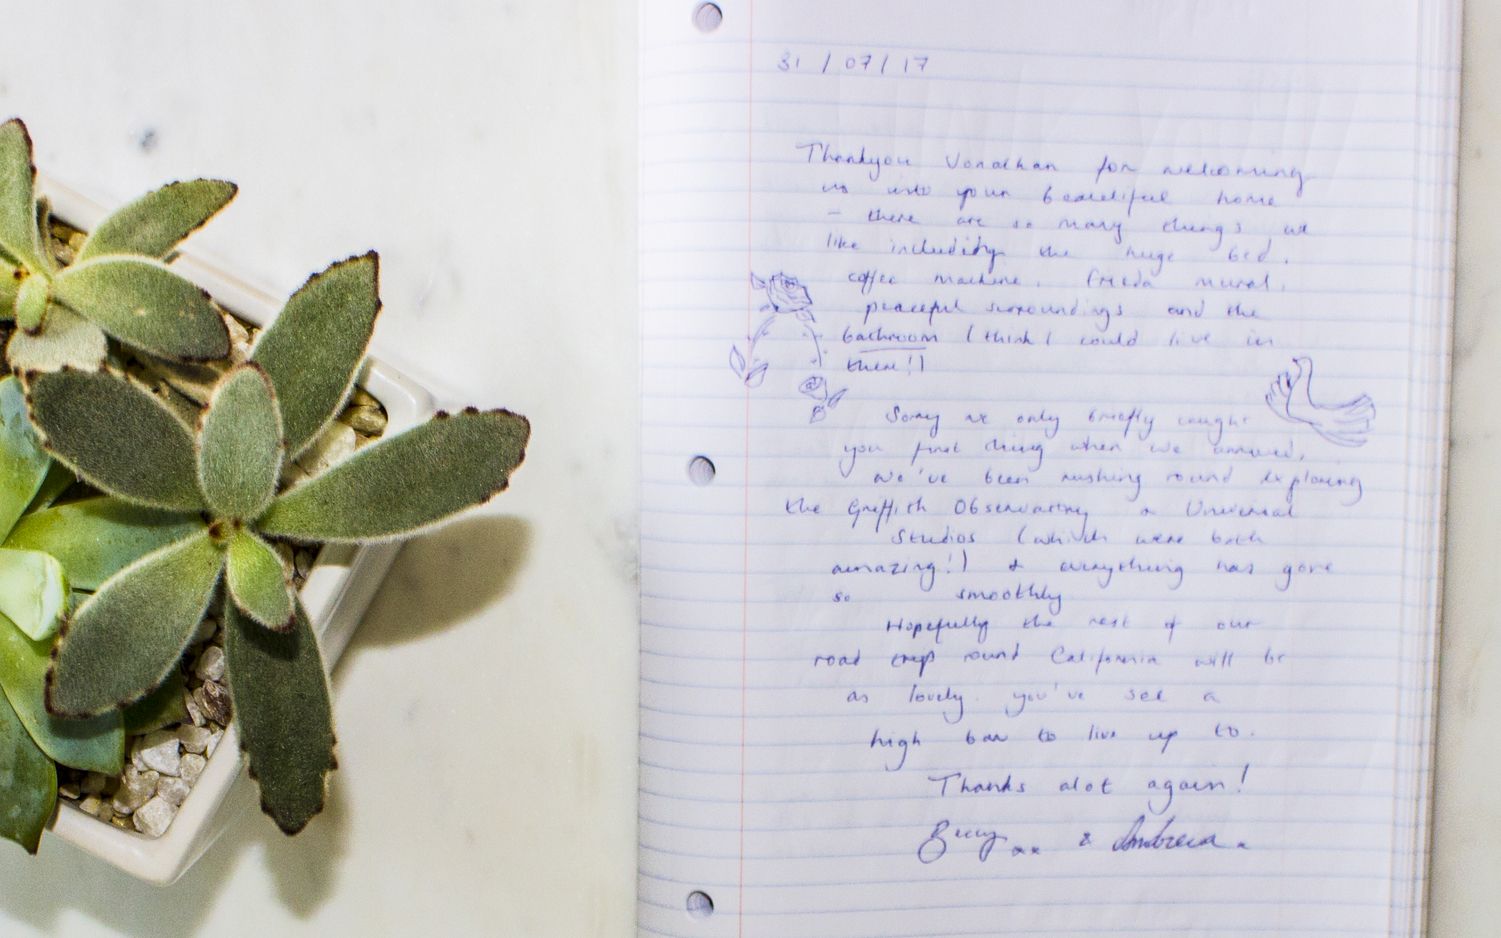 31 / 07 / 17
Thankyou Jonathan for welcoming
us into your beautiful home
- there are so many things we
like including the huge bed,
coffee machine, Frieda mural,
peaceful surroundings and the
bathroom (think I could live in
there!)
Sorry we only briefly caught
you first thing when we arrived,
we've been rushing round exploring
the Griffith Observatory & Universal
Studios (which were both
amazing!) & everything has gone
so smoothly
Hopefully the rest of our
road trip round California will be
as lovely. you've set a
high bar to live up to.
Thanks alot again!
Becny xx & Andreea x